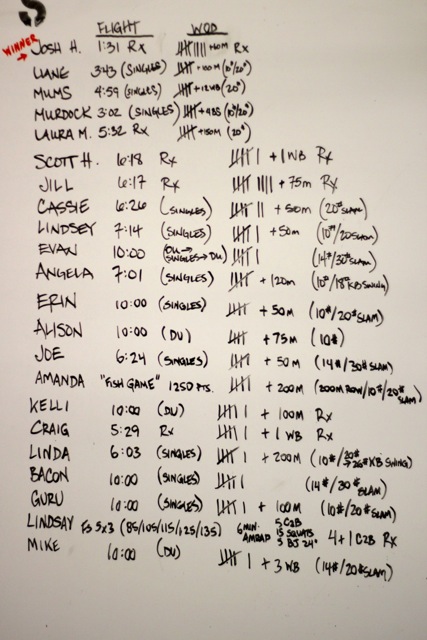 S
FLIGHT WOD
WINNER JOSH H. 1:31 Rx 卌 |||| Rx
LUNE 3:43 (SINGLES) 卌 +100M (10#/20#)
MUMS 4:59 (SINGLES) 卌 +12WB (20#)
MURDOCK 3:02 (SINGLES) 卌 (10#/20#)
LAURA M. 5:32 Rx 卌 +150M (20#)
SCOTT H. 6:18 Rx 卌 | +1 WB Rx
JILL 6:17 Rx 卌 |||| +75m Rx
CASSIE 6:26 (SINGLES) 卌 || +50m (20# SLAM)
LINDSEY 7:14 (SINGLES) 卌 | +50m (10#/20# SLAM)
EVAN 10:00 (DU→ SINGLES→DU) 卌 | (14#/30# SLAM)
ANGELA 7:01 (SINGLES) 卌 +120m (10#/18# KB SWING)
ERIN 10:00 (SINGLES) 卌 +50M (10#/20# SLAM)
ALISON 10:00 (DU) 卌 +75M (10#)
JOE 6:24 (SINGLES) 卌 +50M (14#/30# SLAM)
AMANDA "FISH GAME" 1250 PTS. 卌 +200M (200M ROW/10#/20# SLAM)
KELLI 10:00 (DU) 卌 | +100M Rx
CRAIG 5:29 Rx 卌 | +1 WB Rx
LINDA 6:03 (SINGLES) 卌 | +200M (10#/20# →26# KB SWING)
BACON 10:00 (SINGLES) 卌 | (14#/30# SLAM)
GURU 10:00 (SINGLES) 卌 | +100M (10#/20# SLAM)
LINDSAY FS 5x3 (85/105/115/125/135) 6 MIN. AMRAP 5 C2B 15 SQUATS 5 BJ 24" 4+1 C2B Rx
MIKE 10:00 (DU) 卌 | +3 WB (14#/20# SLAM)